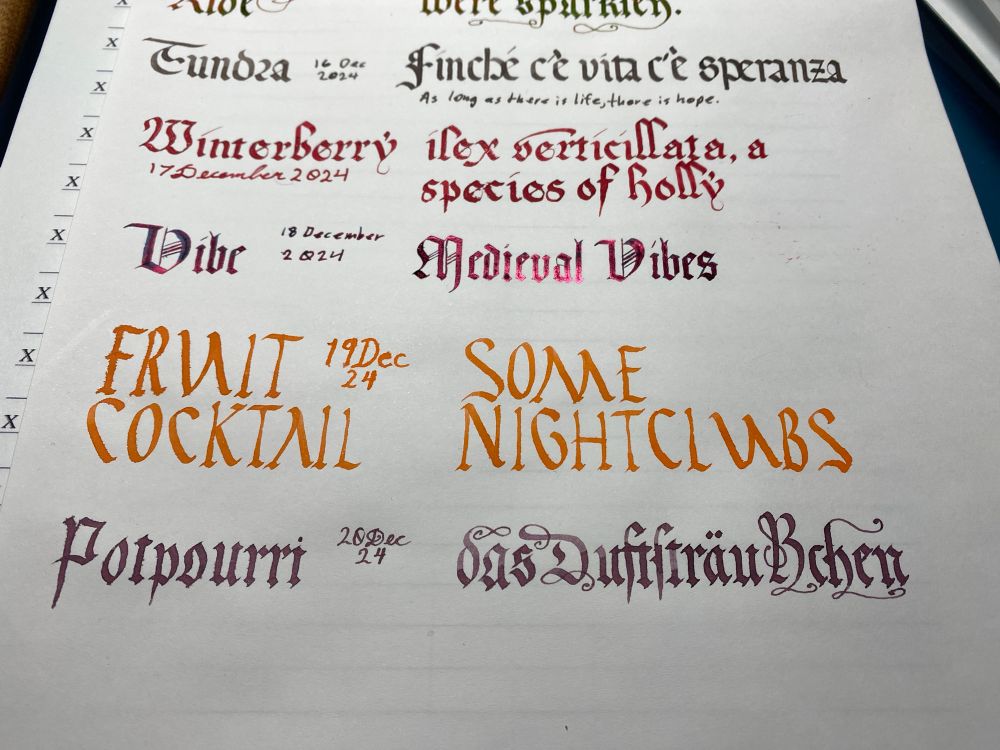 were sparkley.
Tundra 16 Dec 2024 Finché c'è vita c'è speranza
As long as there is life, there is hope.
Winterberry ilex verticillata, a
17 December 2024 species of holly
Vibe 18 December 2024 Medieval Vibes
FRUIT 19 Dec 24 SOME
COCKTAIL NIGHTCLUBS
Potpourri 20 Dec 24 das Duftsträußchen
x
x
x
x
x
x
x
x